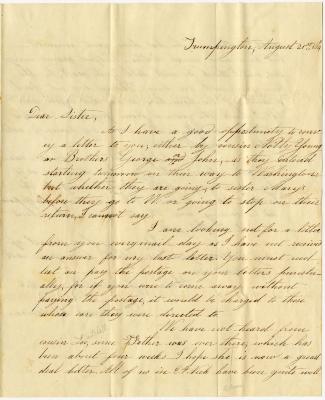 Trumpington, August 20th
Dear Sister,
As I have a good opportunity to convey
a letter to you, either by cousin Young
or Brothers George and John, as they calculate
starting tomorrow on their way to Washington
but whether they are going to sister Mary's
before they go to W. or going to stop on their
return, I cannot say.
I am looking out for a letter
from you every mail day as I have not received
an answer for my last letter. You must not
fail on pay the postage on your letters punctu-
ally, for if you were to come away without
paying the postage, it would be charged to those
whose care they were directed to.
We have not heard from
cousin since Father was over there, which has
been about four weeks. I hope she is now a great
deal better. All of us in have been quite well